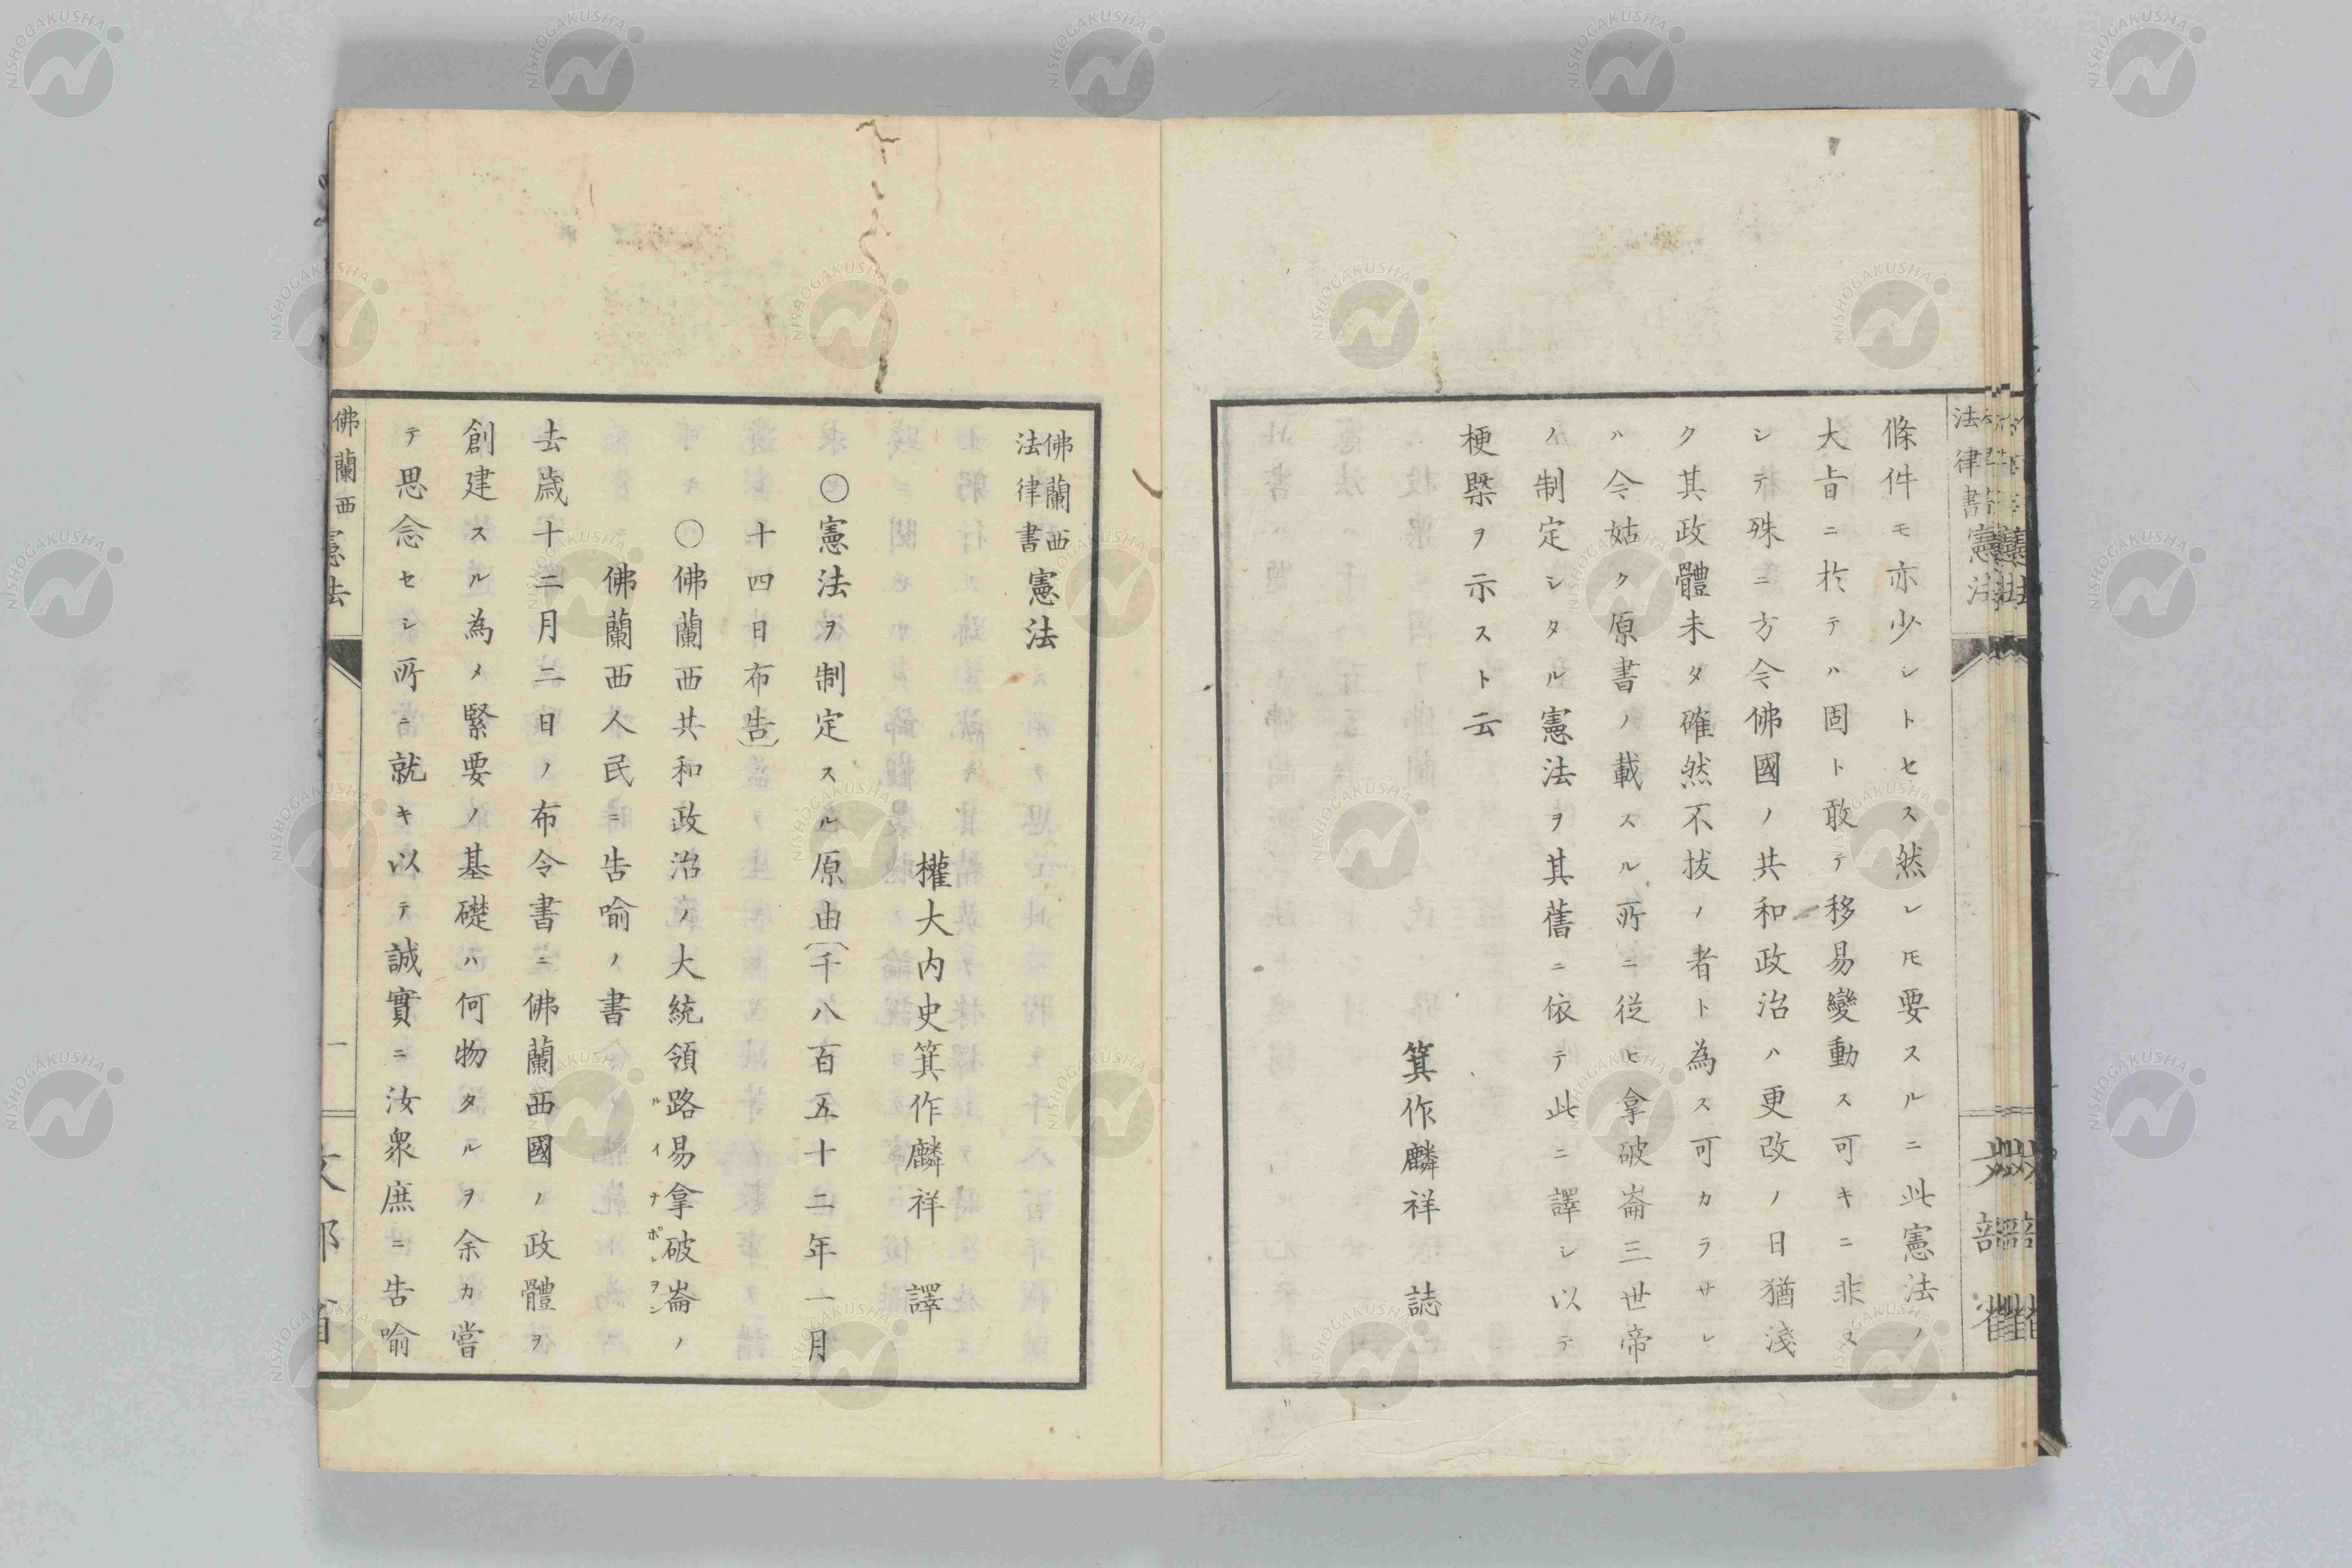 條件モ亦少シトセス然レㇳモ要スルニ此憲法ノ
大旨ニ於テハ固ト敢テ移易變動ス可キニ非ス
シテ殊ニ方今佛國ノ共和政治ハ更改ノ日猶淺
ク其政體未タ確然不拔ノ者ト為ス可カラサレ
ハ今姑ク原書ノ載スル所ニ從ヒ拿破崙三世帝
ノ制定シタル憲法ヲ其舊ニ依テ此ニ譯シ以テ
梗槩ヲ示スト云
箕作麟祥 誌
佛蘭西法律書憲法
權大内史箕作麟祥 譯
〇憲法ヲ制定スル原由(千八百五十二年一月
十四日布告)
〇佛蘭西共和政治ノ大統領路易拿破崙ノ
ルイナポレヲン
佛蘭西人民ニ告喻ノ書
去歲十二月二日ノ布令書ニ佛蘭西國ノ政體ヲ
創建スル為メ緊要ノ基礎ハ何物タルヲ余カ嘗
テ思念セシ所ニ就キ以テ誠實ニ汝衆庶ニ告喻
佛蘭西憲法 一 文部省
NISHOGAKUSHA